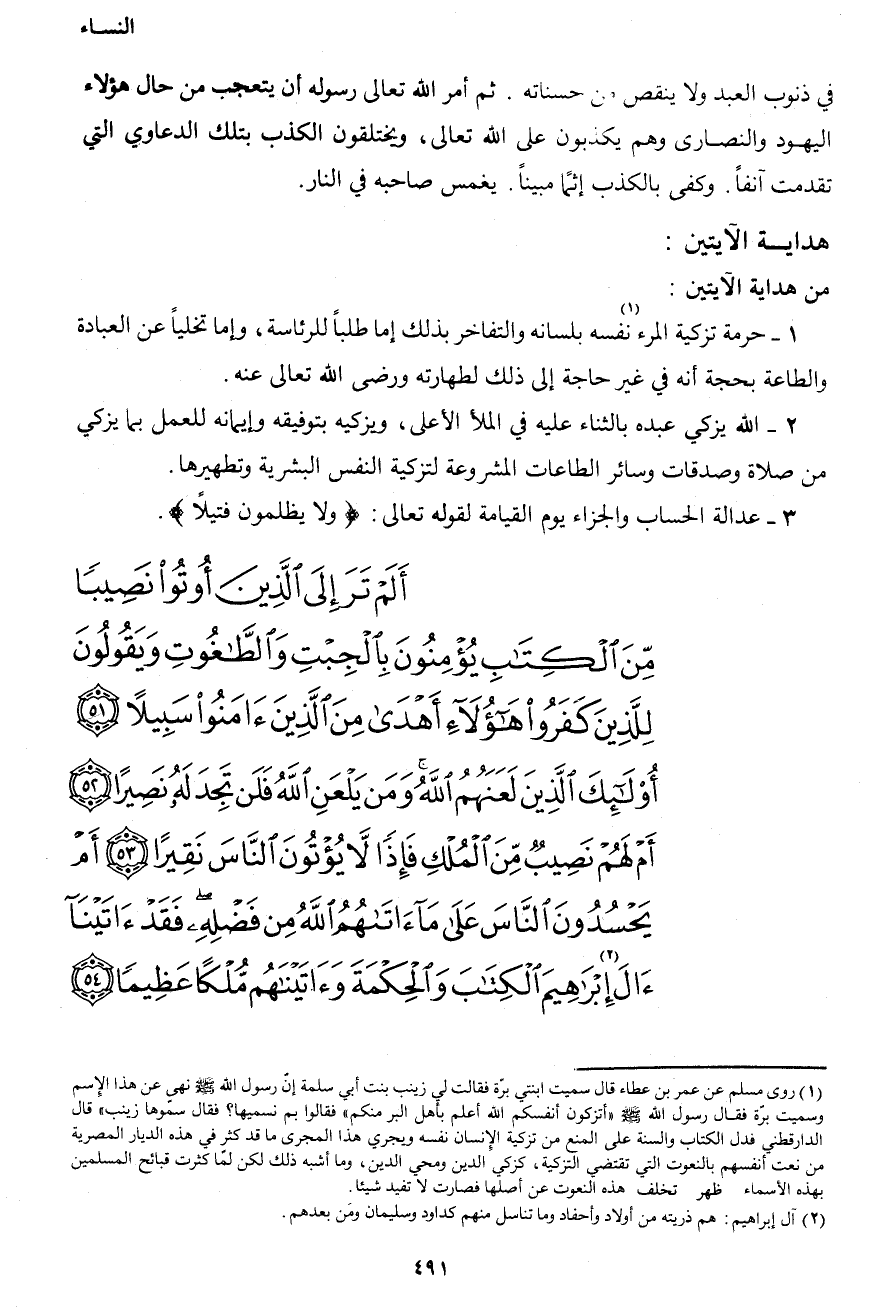 النساء
في ذنوب العبد ولا ينقص من حسناته . ثم أمر الله تعالى رسوله أن يتعجب من حال هؤلاء
اليهود والنصارى وهم يكذبون على الله تعالى، ويختلقون الكذب بتلك الدعاوي التي
تقدمت آنفاً. وكفى بالكذب إثمًا مبيناً. يغمس صاحبه في النار.
هداية الآيتين :
من هداية الآيتين :
١ - حرمة تزكية المرء نفسه(١) بلسانه والتفاخر بذلك إما طلباً للرئاسة، وإما تخلياً عن العبادة
والطاعة بحجة أنه في غير حاجة إلى ذلك لطهارته ورضى الله تعالى عنه.
٢ - الله يزكي عبده بالثناء عليه في الملأ الأعلى، ويزكيه بتوفيقه وإيمانه للعمل بما يزكي
من صلاة وصدقات وسائر الطاعات المشروعة لتزكية النفس البشرية وتطهيرها.
٣ - عدالة الحساب والجزاء يوم القيامة لقوله تعالى: ﴿ ولا يظلمون فتيلاً ﴾.
أَلَمْ تَرَ إِلَى ٱلَّذِينَ أُوتُوا۟ نَصِيبًا
مِّنَ ٱلْكِتَٰبِ يُؤْمِنُونَ بِٱلْجِبْتِ وَٱلطَّٰغُوتِ وَيَقُولُونَ
لِلَّذِينَ كَفَرُوا۟ هَٰٓؤُلَآءِ أَهْدَىٰ مِنَ ٱلَّذِينَ ءَامَنُوا۟ سَبِيلًا ٥١
أُو۟لَٰٓئِكَ ٱلَّذِينَ لَعَنَهُمُ ٱللَّهُ ۖ وَمَن يَلْعَنِ ٱللَّهُ فَلَن تَجِدَ لَهُۥ نَصِيرًا ٥٢
أَمْ لَهُمْ نَصِيبٌ مِّنَ ٱلْمُلْكِ فَإِذًا لَّا يُؤْتُونَ ٱلنَّاسَ نَقِيرًا ٥٣ أَمْ
يَحْسُدُونَ ٱلنَّاسَ عَلَىٰ مَآ ءَاتَىٰهُمُ ٱللَّهُ مِن فَضْلِهِۦ ۖ فَقَدْ ءَاتَيْنَآ
ءَالَ إِبْرَٰهِيمَ(٢) ٱلْكِتَٰبَ وَٱلْحِكْمَةَ وَءَاتَيْنَٰهُم مُّلْكًا عَظِيمًا ٥٤
(١) روى مسلم عن عمر بن عطاء قال سميت ابنتي برّة فقالت لي زينب بنت أبي سلمة إنّ رسول الله ﷺ نهي عن هذا الإسم
وسميت برّة فقال رسول الله ﷺ «أتزكون أنفسكم الله أعلم بأهل البر منكم» فقالوا بم نسميها؟ فقال سمّوها زينب» قال
الدارقطني فدل الكتاب والسنة على المنع من تزكية الإنسان نفسه ويجري هذا المجرى ما قد كثر في هذه الديار المصرية
من نعت أنفسهم بالنعوت التي تقتضي التزكية، كزكي الدين ومحي الدين، وما أشبه ذلك لكن لمّا كثرت قبائح المسلمين
بهذه الأسماء ظهر تخلف هذه النعوت عن أصلها فصارت لا تفيد شيئا.
(٢) آل إبراهيم: هم ذريته من أولاد وأحفاد وما تناسل منهم كداود وسليمان ومَن بعدهم.
٤٩١